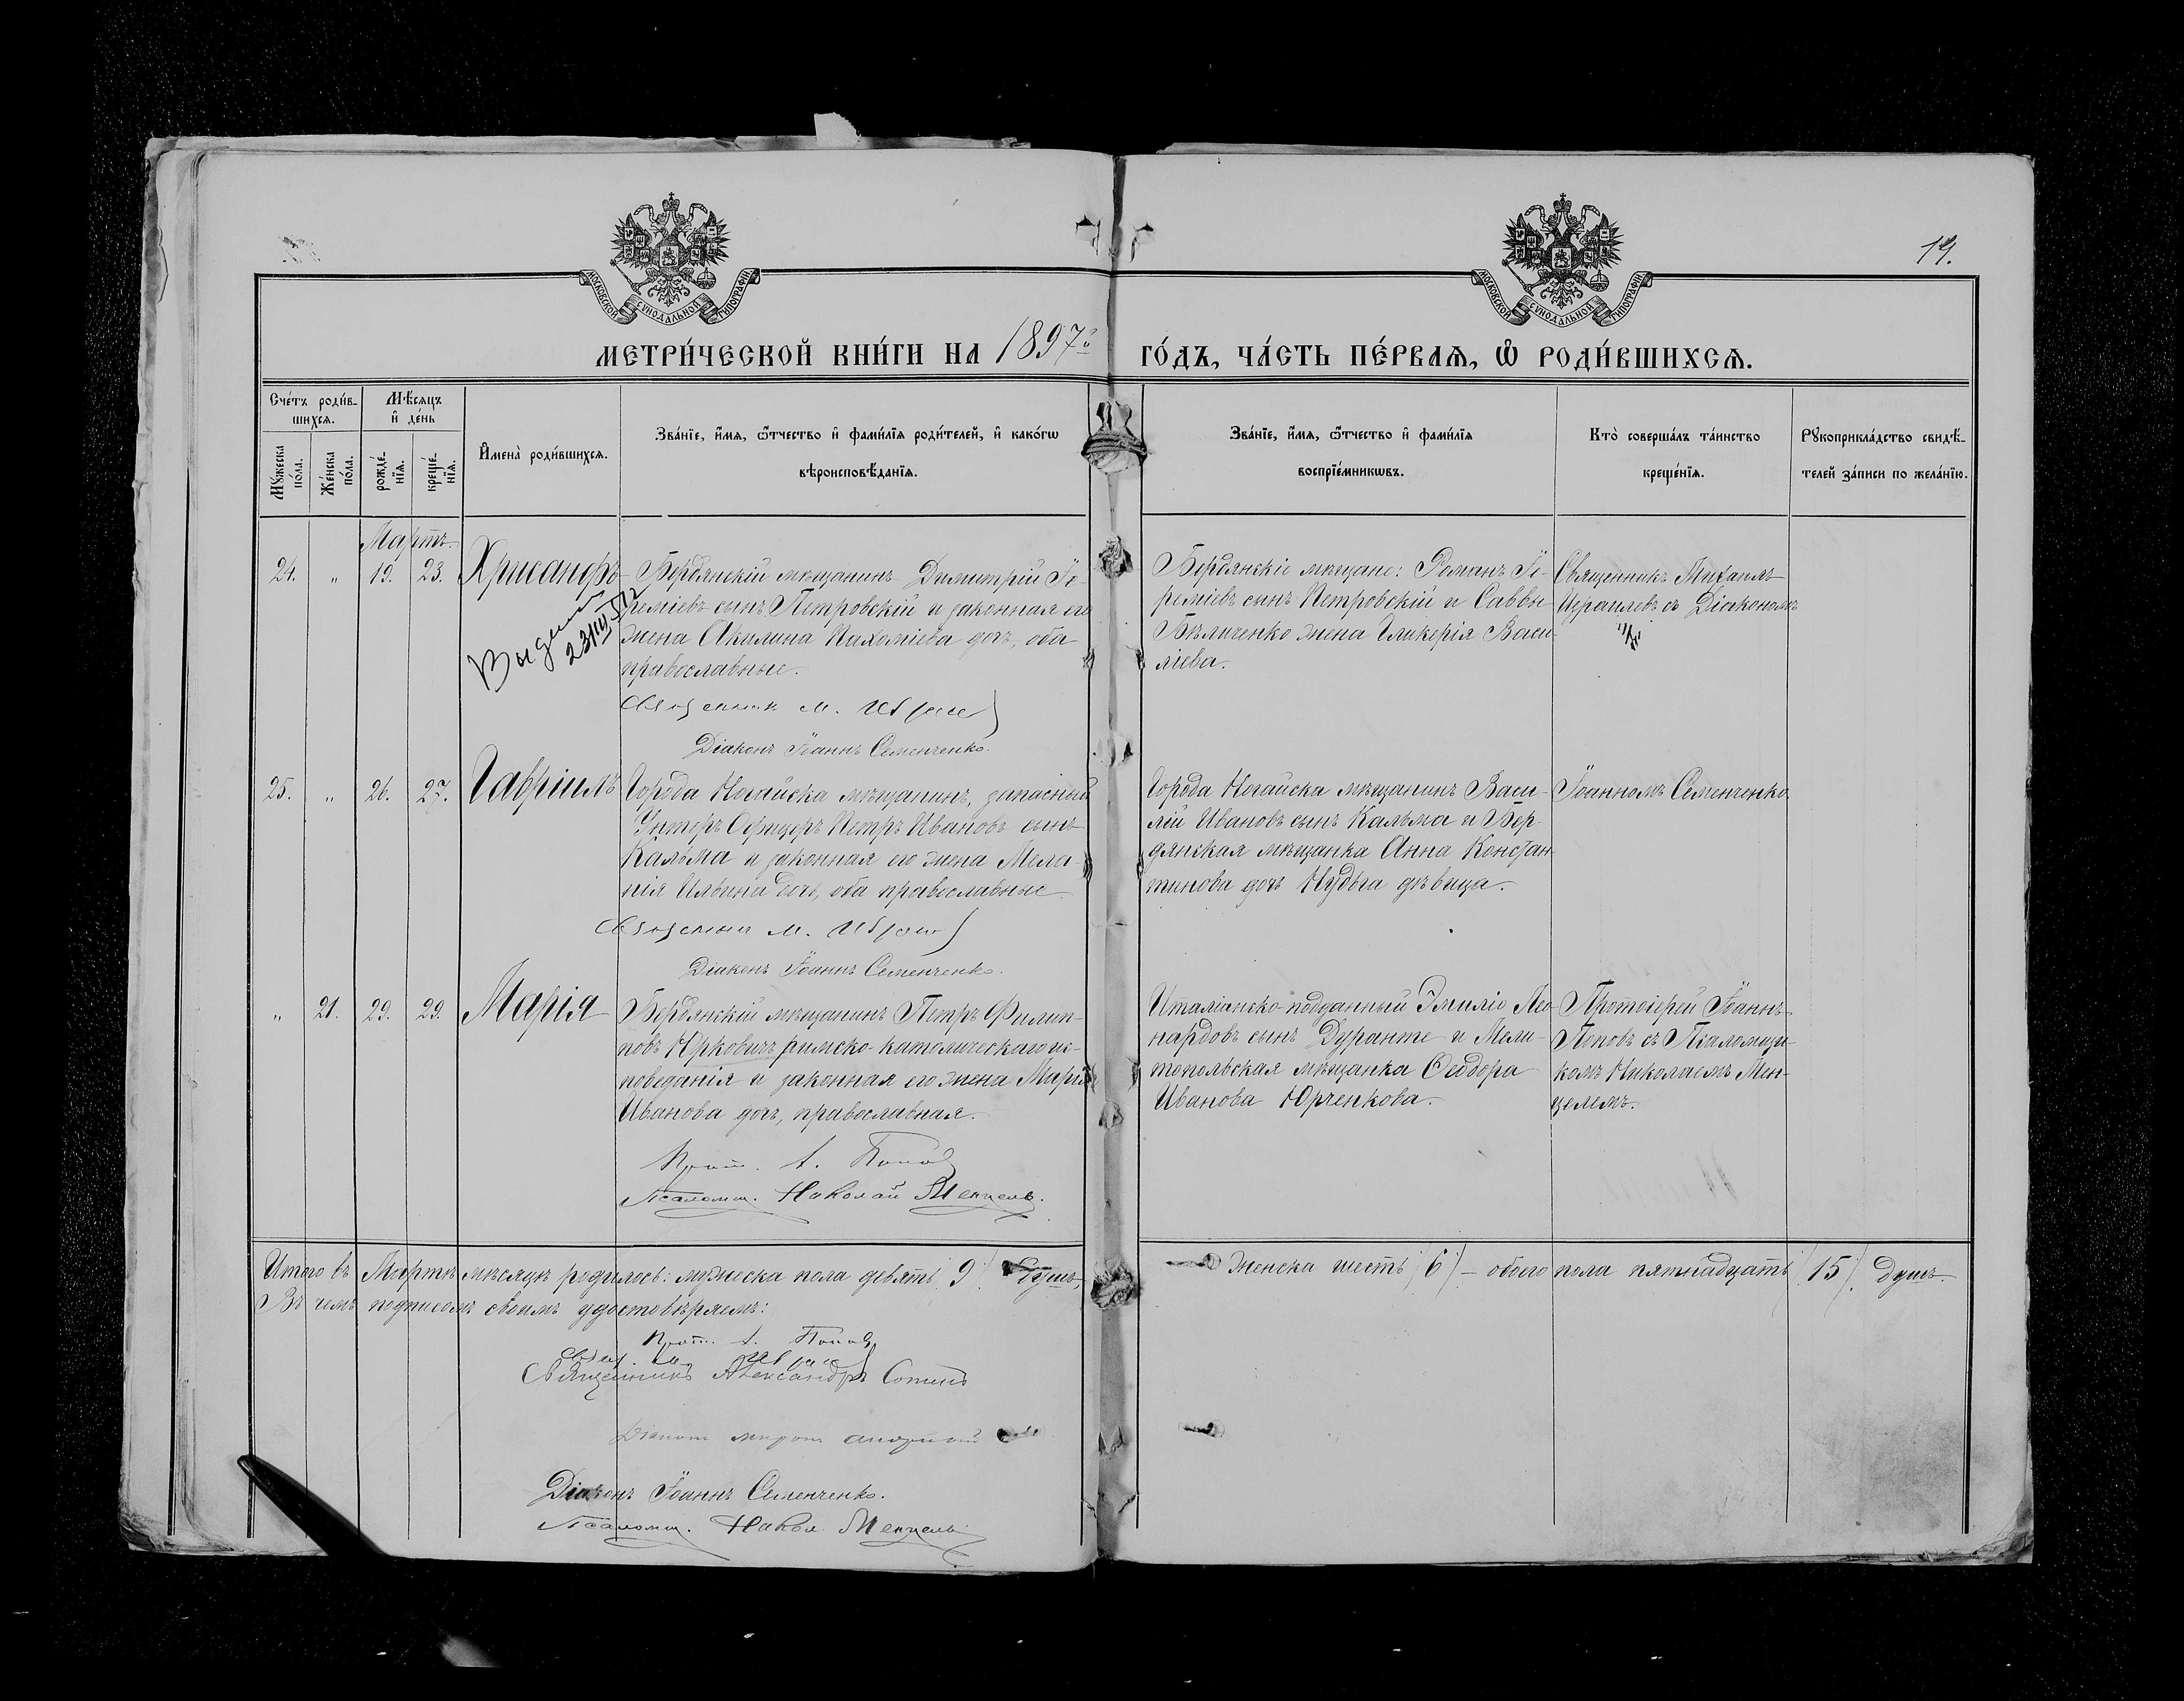 19.
МОСКОВСКОЙ СѴНОДАЛЬНОЙ ТИПОГРАФІИ
МОСКОВСКОЙ СѴНОДАЛЬНОЙ ТИПОГРАФІИ
МЕТРИ́ЧЕСКОЙ КНИ́ГИ НА 1897й ГО́ДЪ, ЧА́СТЬ ПЕ́РВАѦ, Ѡ҆ РОДИ́ВШИХСѦ.
Сче́тъ роди́в-
шихсѧ.
Мѣ́сѧцъ
и҆ де́нь
Мꙋ́жеска
по́ла.
Же́нска
по́ла.
рожде́-
нїѧ.
креще́-
нїѧ.
И҆мена̀ роди́вшихсѧ.
Зва́нїе, и҆́мѧ, ѻ҆́тчество и҆ фами́лїѧ роди́телей, и҆ како́гѡ
вѣроисповѣ́данїѧ.
Зва́нїе, и҆́мѧ, ѻ҆́тчество и҆ фами́лїѧ
воспрїе́мникѡвъ.
Кто̀ соверша́лъ та́инство
креще́нїѧ.
Рꙋкоприкла́дство свидѣ́-
телей за́писи по жела́нїю.
Мартъ.
24. " 19. 23. Хрисанфъ
Бердянскій мѣщанинъ Димитрій Іе-
реміевъ сынъ Петровскій и законная его
жена Акилина Пахоміева дочь, оба
православные.
Выдан
23/III
Священник М.
Діаконъ Іоаннъ Семенченко.
Бердянскіе мѣщане: Романъ Іе-
реміевъ сынъ Петровскій и Саввы
Бѣличенко жена Гликерія Васи-
ліева.
Священникъ Михаилъ
Израилевъ съ Діакономъ
25. " 26. 27. Гавріилъ
Города Ногайска мѣщанинъ, запасный
Унтеръ Офицеръ Петръ Ивановъ сынъ
Кальма и законная его жена Мела-
нія Ильина дочь, оба православные
Священник М.
Діаконъ Іоаннъ Семенченко.
Города Ногайска мѣщанинъ Васи-
лій Ивановъ сынъ Кальма и Бер-
дянская мѣщанка Анна Констан-
тинова дочь Нудьга дѣвица.
Іоанномъ Семенченко.
" 21. 29. 29. Марія
Бердянскій мѣщанинъ Петръ Филип-
повъ Юрковичъ римско-католическаго ис-
поведанія и законная его жена Марія
Иванова дочь, православная.
Прот. І. Попов
Псаломщ. Николай Менцель.
Италіанско-подданный Эмиліо Лео-
нардовъ сынъ Дуранте и Мели-
топольская мѣщанка Ѳеодора
Иванова Юрченкова.
Протоіерей Іоаннъ
Поповъ съ Псаломщи-
комъ Николаемъ Мен-
целемъ.
Итого въ Мартѣ мѣсяцѣ родилось: мужеска пола девять /9/ душъ, женска шесть /6/ – обоего пола пятнадцать /15/. душъ.
Въ чемъ подписомъ своимъ удостовѣряемъ:
Прот. І. Попов
Свящ. М.
Священникъ Александръ Сотинъ
Діаконъ
Діаконъ Іоаннъ Семенченко.
Псаломщ. Никол. Менцель